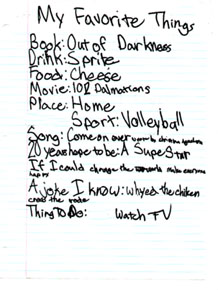 My Favorite Things
Book: Out of Darkness
Drink: Sprite
Food: Cheese
Movie: 102 Dalmations
Place: Home
Sport: Volleyball
Song: Come on over
20 years hope to be: A SupeStar
If I could change the world make everyone happy
A joke I know: whyed the chiken
cross the rode
Thing To Do: Watch TV